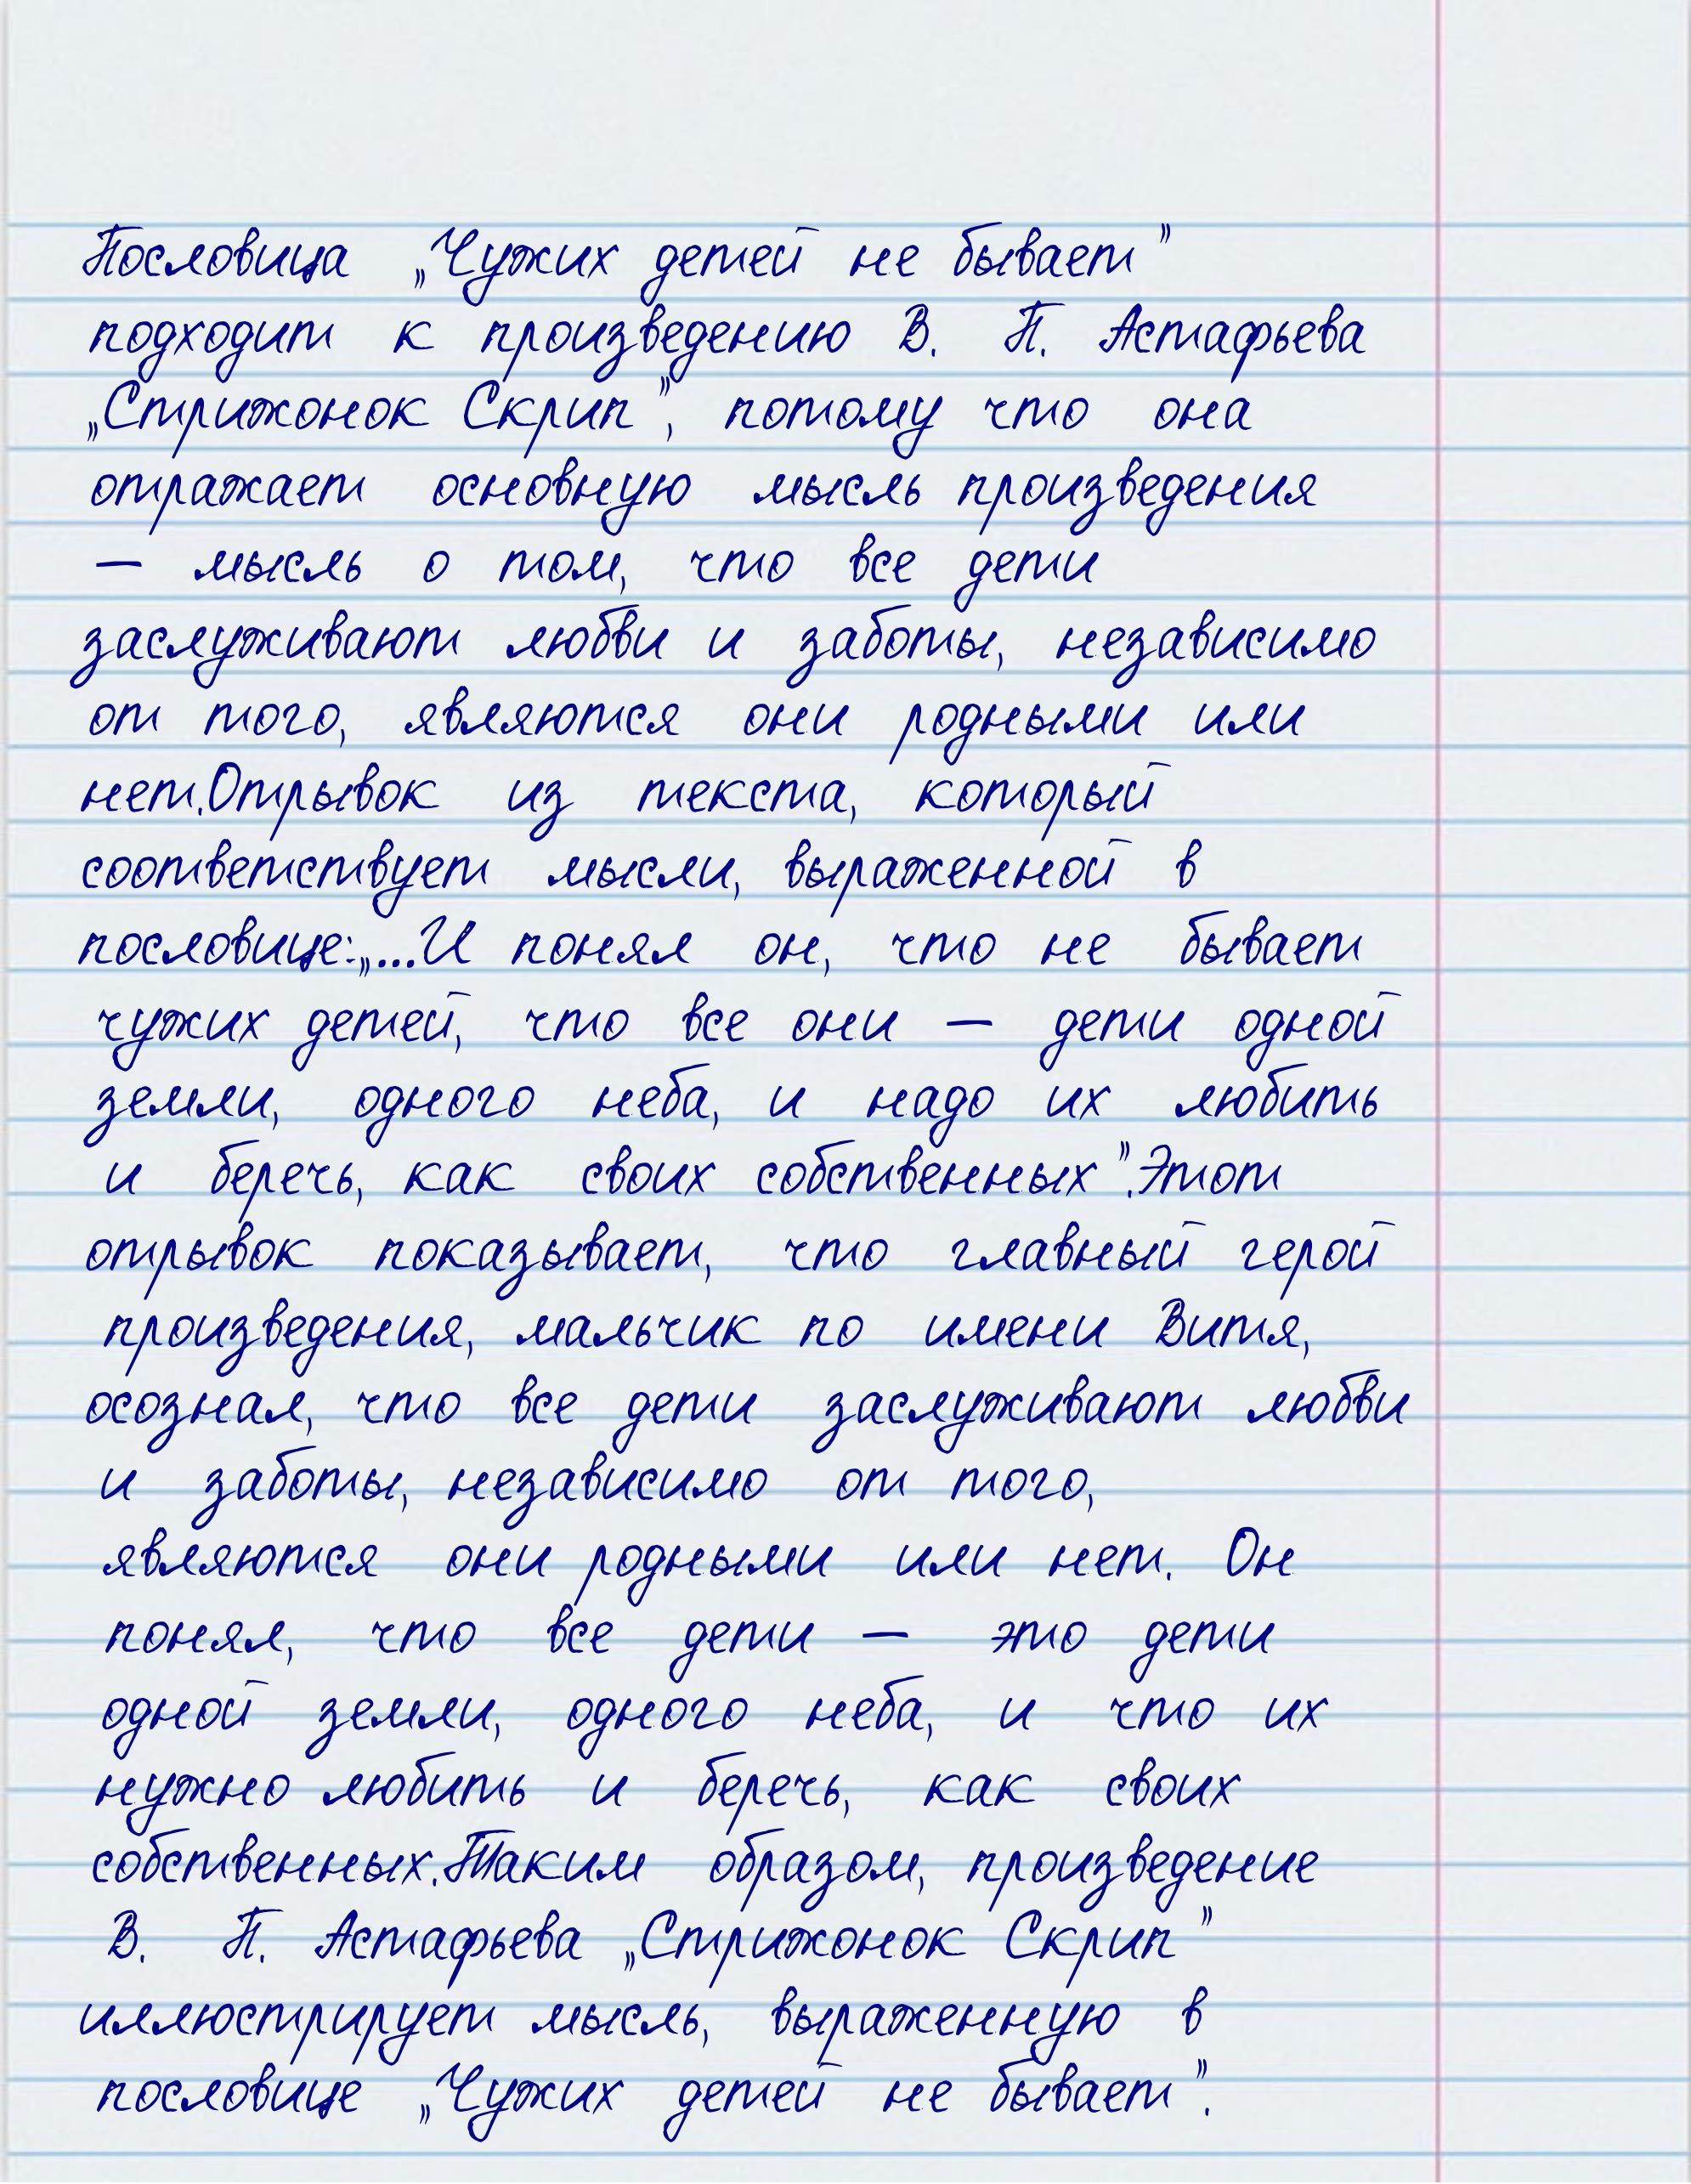 Пословица „Чужих детей не бывает”
подходит к произведению В. П. Астафьева
„Стрижонок Скрип”, потому что она
отражает основную мысль произведения
— мысль о том, что все дети
заслуживают любви и заботы, независимо
от того, являются они родными или
нет.Отрывок из текста, который
соответствует мысли, выраженной в
пословице:„...И понял он, что не бывает
чужих детей, что все они — дети одной
земли, одного неба, и надо их любить
и беречь, как своих собственных”.Этот
отрывок показывает, что главный герой
произведения, мальчик по имени Витя,
осознал, что все дети заслуживают любви
и заботы, независимо от того,
являются они родными или нет. Он
понял, что все дети — это дети
одной земли, одного неба, и что их
нужно любить и беречь, как своих
собственных.Таким образом, произведение
В. П. Астафьева „Стрижонок Скрип”
иллюстрирует мысль, выраженную в
пословице „Чужих детей не бывает”.